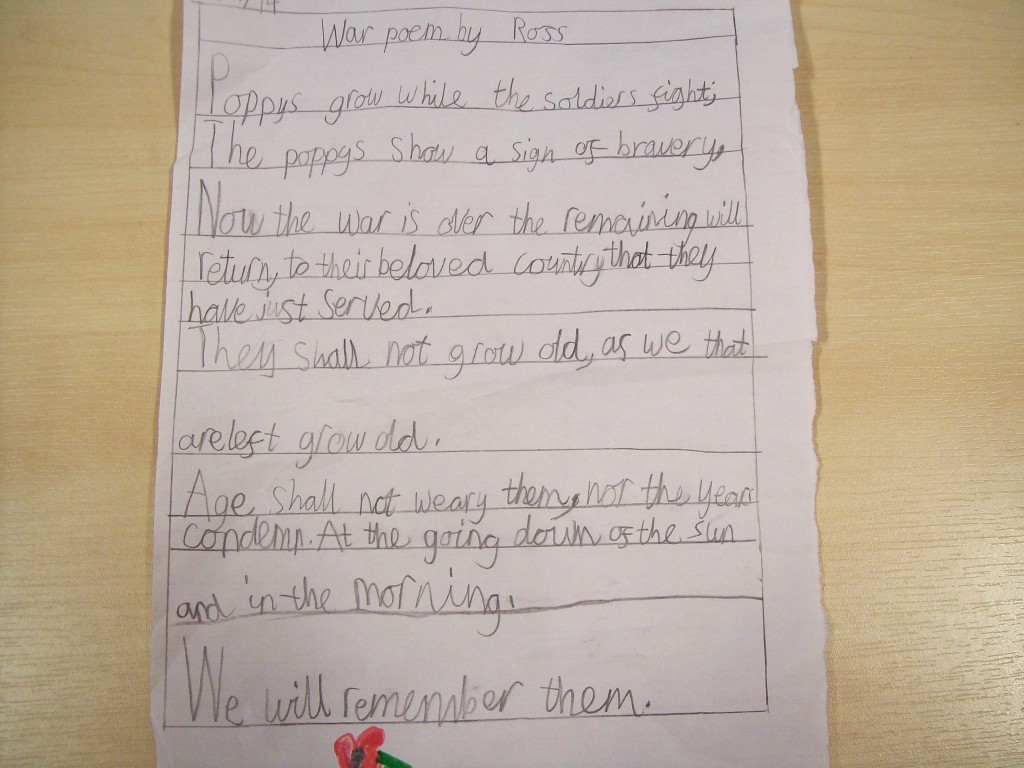 War poem by Ross
Poppys grow while the soldiers fight;
The poppys show a sign of bravery,
Now the war is over the remaining will
return, to their beloved country that they
have just served.
They shall not grow old, as we that
are left grow old.
Age shall not weary them, nor the years
condemn. At the going down of the sun
and in the morning.
We will remember them.